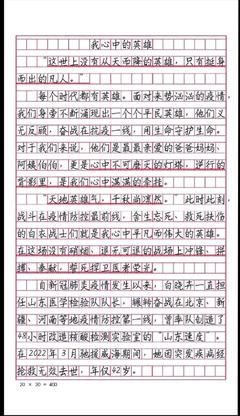 我心中的英雄
“这世上没有从天而降的英雄，只有挺身
而出的凡人。”
每个时代都有英雄。面对来势汹汹的疫情，
我们身旁不断涌现出一个个平凡英雄，他们义
无反顾，奋战在抗疫一线，用生命守护生命。
对于我们来说，他们是最最亲爱的爸爸妈妈、
阿姨伯伯，更是心中不可磨灭的灯塔，逆行的
背影里，是我们心中满满的牵挂。
“天地英雄气，千秋尚凛然。”此时此刻，
战斗在疫情防控最前线，舍生忘死、救死扶伤
的白衣战士们就是我心中平凡而伟大的英雄。
在这场没有硝烟、退无可退的战场上冲锋、拼
搏、奉献，誓死捍卫医者荣光。
自新冠肺炎疫情发生以来，白晓卉一直担
任山东医学检验队队长，辗转奋战在北京、新
疆、河南等地疫情防控第一线，曾率队创造了
48小时改造核酸检测实验室的“山东速度”。
在2022年3月驰援威海期间，她因突发疾病经
抢救无效去世，年仅42岁。
20 × 20 = 400